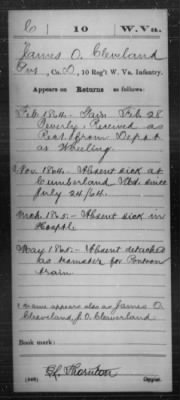 C 10 W.Va.
James O. Cleveland
Pvt., Co. D, 10 Reg't W. Va. Infantry.
Appears on Returns as follows:
Feb 1864.- Gain Feb 28
Beverly. Received as
Rect. from Depot
at Wheeling.
Nov 1864.- Absent sick at
Cumberland Md. since
July 24/64.
Mch 1865.- Absent sick in
Hosptl.
May 1865.- Absent detached
as teamster for Pontoon
train.
Name appears also as James O.
Cleaveland, J. O. Cleaverland
Book mark:
Thornton
(546) Copyist.